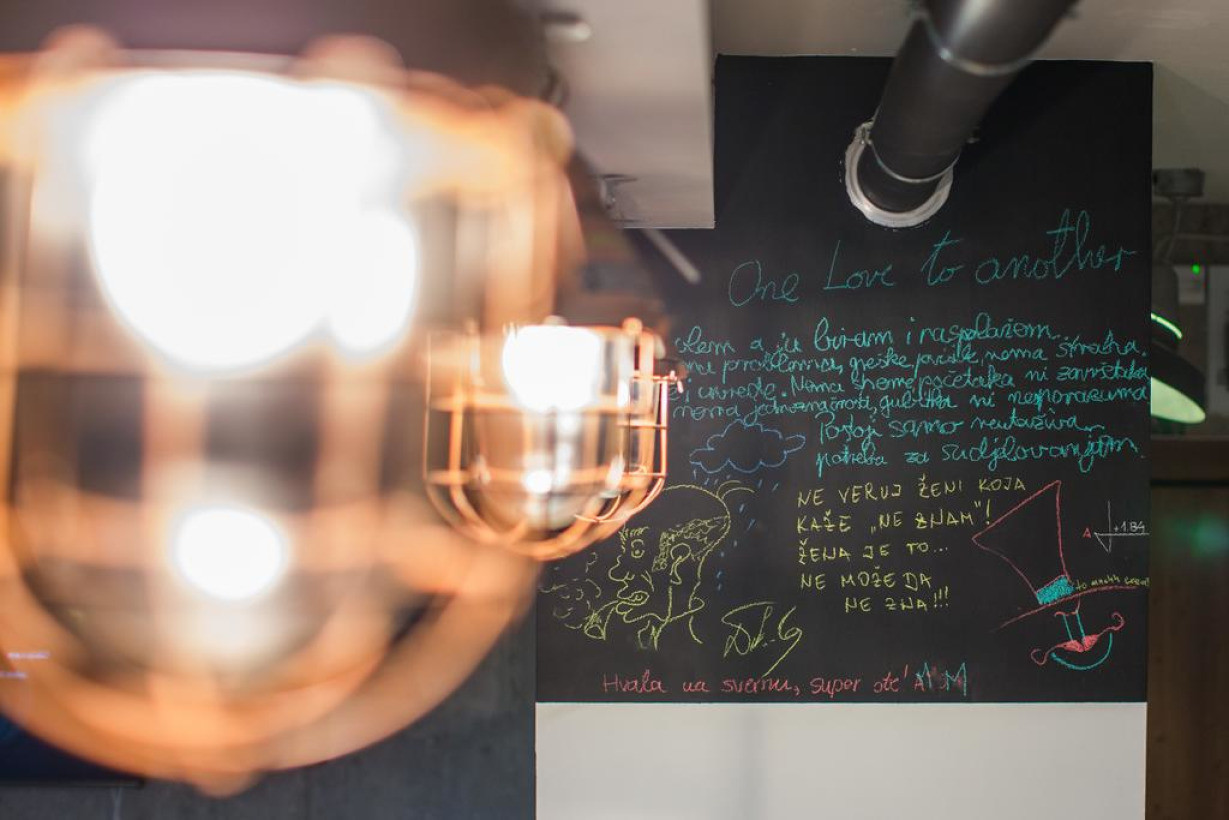 One Love to another
a ja biram i raspolažem...
problema, greške, nema straha.
i uvrede. Nema srome, početaka ni završetaka
nema jednoznačnosti, gubitka ni nesporazuma
Postoji samo neutaživa
potreba za sudjelovanjem.
NE VERUJ ŽENI KOJA
KAŽE „NE ZNAM"!
ŽENA JE TO...
NE MOŽE DA
NE ZNA!!!
A +1.84
to much
Hvala na svemu, super ste!